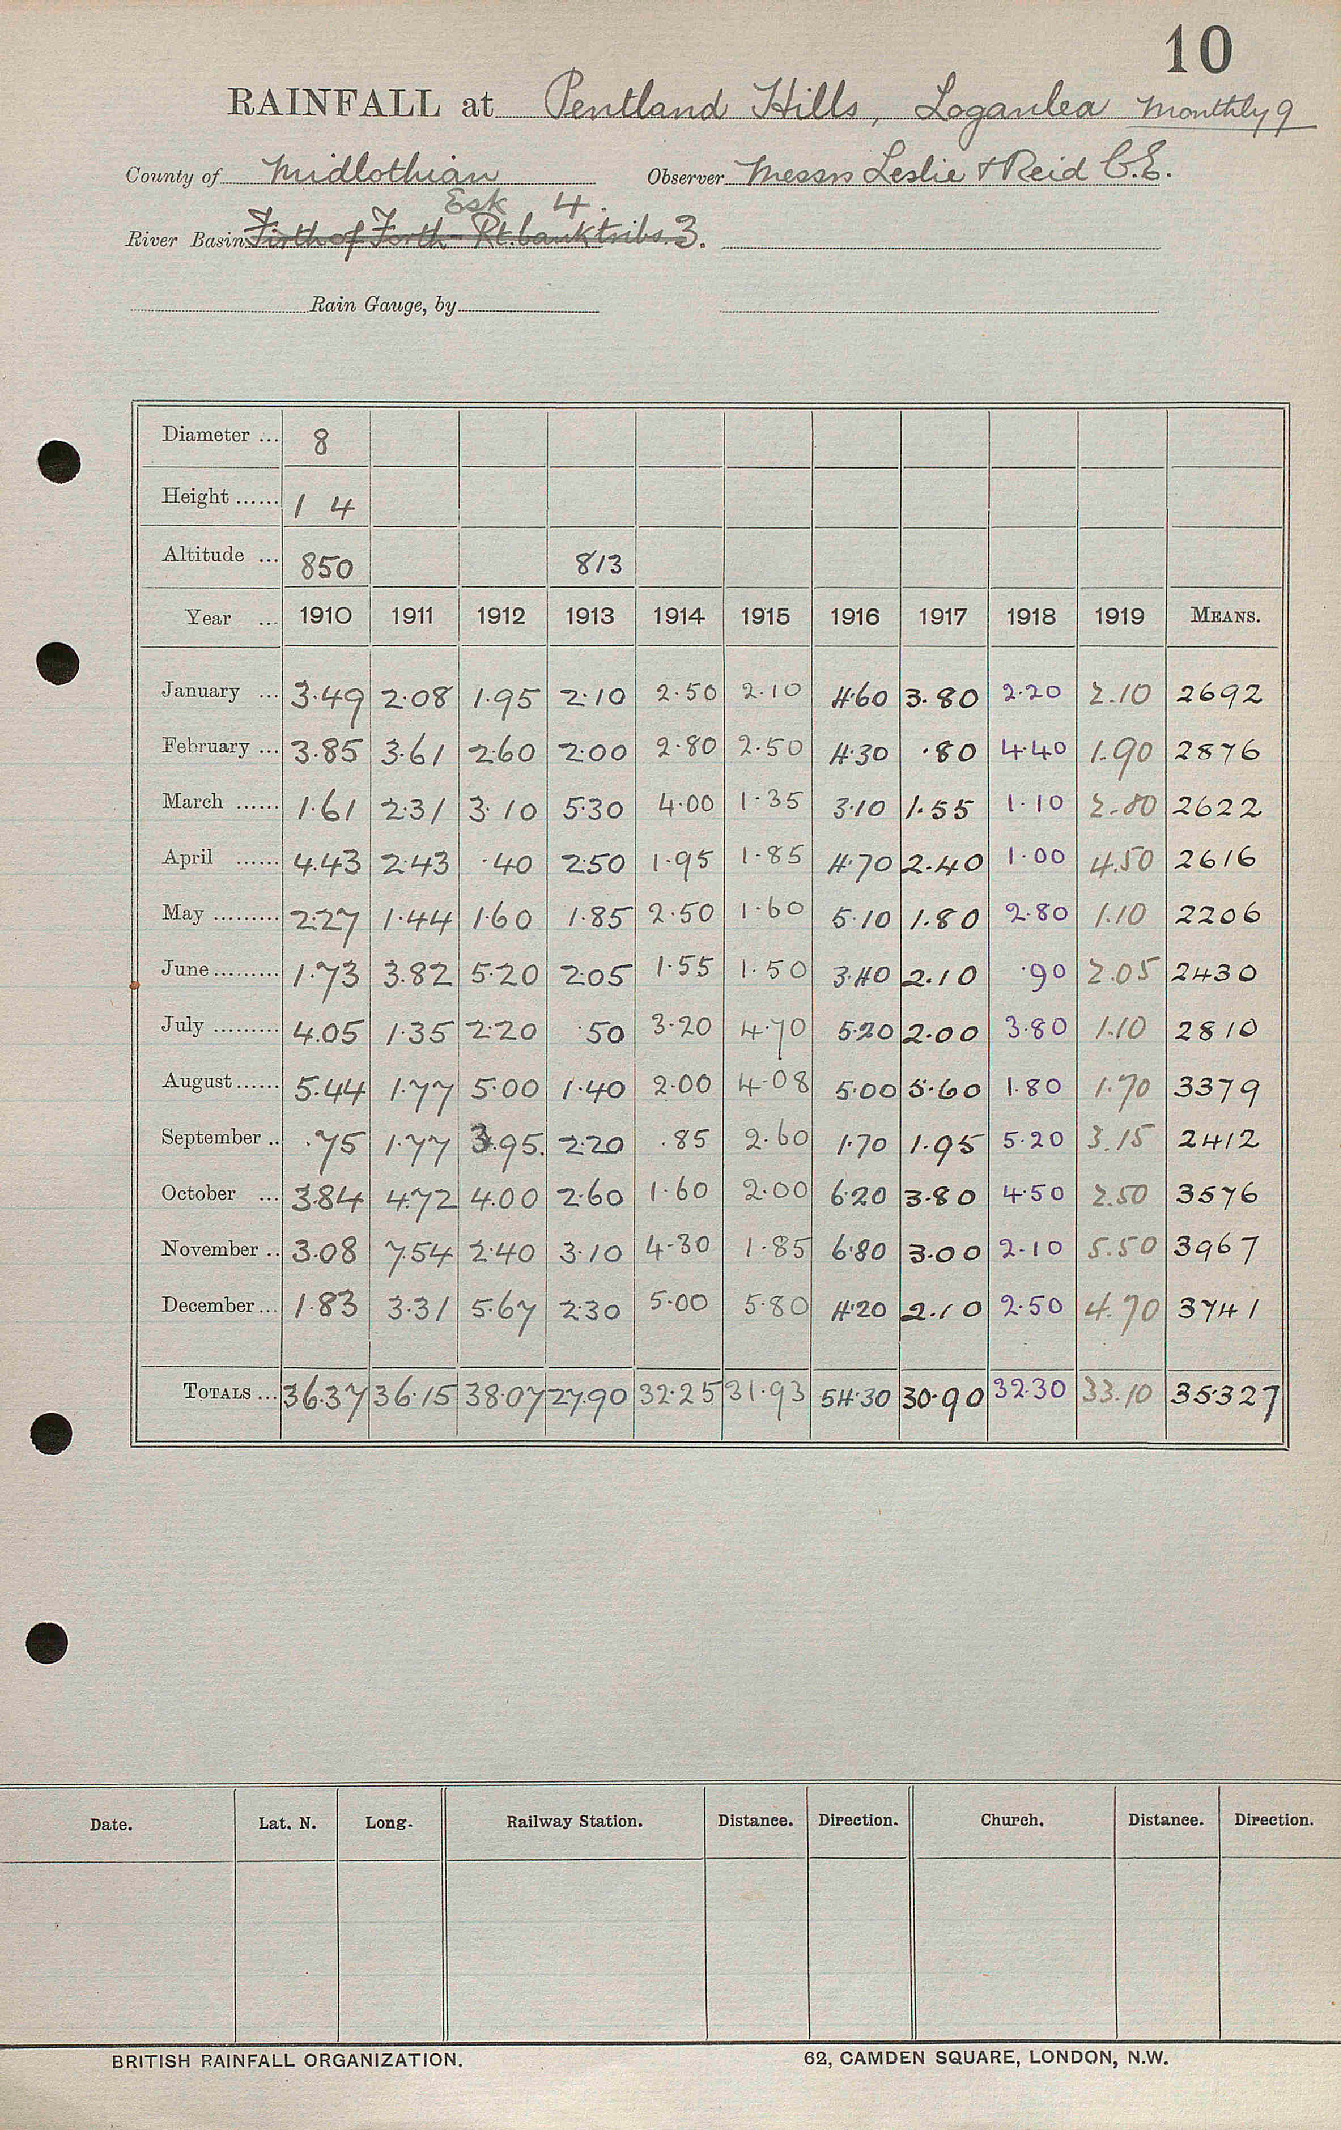 10
RAINFALL at Pentland Hills, Loganlea Monthly 9
County of Midlothian Observer Messrs Leslie & Reid C.E.
Esk 4.
River Basin Firth of Forth - Rt. bank tribs. 3.
Rain Gauge, by
Diameter ... 8
Height ...... 1 4
Altitude ... 850 813
Year ... 1910 1911 1912 1913 1914 1915 1916 1917 1918 1919 MEANS.
January ... 3.49 2.08 1.95 2.10 2.50 2.10 4.60 3.80 2.20 2.10 2692
February ... 3.85 3.61 2.60 2.00 2.80 2.50 4.30 .80 4.40 1.90 2876
March ...... 1.61 2.31 3.10 5.30 4.00 1.35 3.10 1.55 1.10 2.80 2622
April ...... 4.43 2.43 .40 2.50 1.95 1.85 4.70 2.40 1.00 4.50 2616
May ......... 2.27 1.44 1.60 1.85 2.50 1.60 5.10 1.80 2.80 1.10 2206
June ......... 1.73 3.82 5.20 2.05 1.55 1.50 3.40 2.10 .90 2.05 2430
July ......... 4.05 1.35 2.20 .50 3.20 4.70 5.20 2.00 3.80 1.10 2810
August ...... 5.44 1.77 5.00 1.40 2.00 4.08 5.00 5.60 1.80 1.70 3379
September .. .75 1.77 3.95. 2.20 .85 2.60 1.70 1.95 5.20 3.15 2412
October ... 3.84 4.72 4.00 2.60 1.60 2.00 6.20 3.80 4.50 2.50 3576
November .. 3.08 7.54 2.40 3.10 4.30 1.85 6.80 3.00 2.10 5.50 3967
December ... 1.83 3.31 5.67 2.30 5.00 5.80 4.20 2.10 2.50 4.70 3741
TOTALS ... 36.37 36.15 38.07 27.90 32.25 31.93 54.30 30.90 32.30 33.10 35.327
Date. Lat. N. Long. Railway Station. Distance. Direction. Church. Distance. Direction.
BRITISH RAINFALL ORGANIZATION. 62, CAMDEN SQUARE, LONDON, N.W.